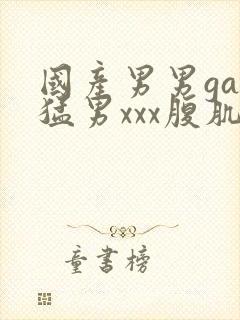 國產男男ga
猛男xxx腹肌
童書榜